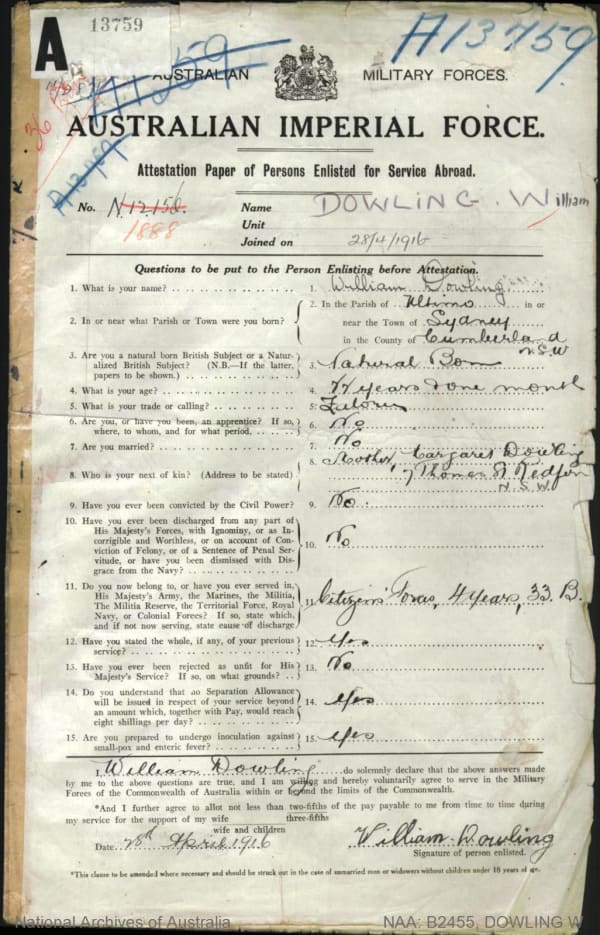 A 13759
A13759
A11359
AUSTRALIAN MILITARY FORCES.
36
AUSTRALIAN IMPERIAL FORCE.
A13759
Attestation Paper of Persons Enlisted for Service Abroad.
No. N.12156. Name DOWLING. William
1888 Unit
Joined on 28/4/1916
Questions to be put to the Person Enlisting before Attestation.
1. What is your name? 1. William Dowling
2. In or near what Parish or Town were you born? 2. In the Parish of Ultimo in or
near the Town of Sydney
in the County of Cumberland
N.S.W
3. Are you a natural born British Subject or a Natur-
alized British Subject? (N.B.—If the latter,
papers to be shown.) 3. Natural Born
4. What is your age? 4. 22 years & one month
5. What is your trade or calling? 5. Labourer
6. Are you, or have you been, an apprentice? If so,
where, to whom, and for what period. 6. No
7. Are you married? 7. No
8. Who is your next of kin? (Address to be stated) 8. Mother, Margaret Dowling
7 Thomas St Redfern
N.S.W.
9. Have you ever been convicted by the Civil Power? 9. No.
10. Have you ever been discharged from any part of
His Majesty's Forces, with Ignominy, or as In-
corrigible and Worthless, or on account of Con-
viction of Felony, or of a Sentence of Penal Ser-
vitude, or have you been dismissed with Dis-
grace from the Navy? 10. No
11. Do you now belong to, or have you ever served in,
His Majesty's Army, the Marines, the Militia,
The Militia Reserve, the Territorial Force, Royal
Navy, or Colonial Forces? If so, state which,
and if not now serving, state cause of discharge 11. Citizens Forces, 4 years, 33. B.
12. Have you stated the whole, if any, of your previous
service? 12. Yes
13. Have you ever been rejected as unfit for His
Majesty's Service? If so, on what grounds? 13. No
14. Do you understand that no Separation Allowance
will be issued in respect of your service beyond
an amount which, together with Pay, would reach
eight shillings per day? 14. Yes
15. Are you prepared to undergo inoculation against
small-pox and enteric fever? 15. Yes
I, William Dowling do solemnly declare that the above answers made
by me to the above questions are true, and I am willing and hereby voluntarily agree to serve in the Military
Forces of the Commonwealth of Australia within or beyond the limits of the Commonwealth.
*And I further agree to allot not less than two-fifths of the pay payable to me from time to time during
my service for the support of my wife three-fifths
wife and children
Date 28th April 1916 William Dowling
Signature of person enlisted.
*This clause to be amended where necessary and should be struck out in the case of unmarried men or widowers without children under 18 years of age.
National Archives of Australia NAA: B2455, DOWLING W